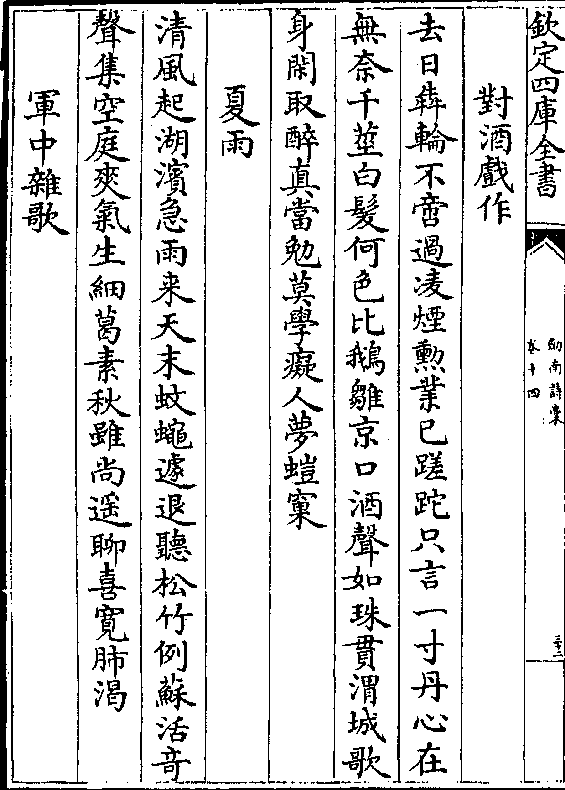 欽定四庫全書
劍南詩稾
卷十四
三三
對酒戲作
去日犇輪不啻過凌煙勲業已蹉跎只言一寸丹心在
無奈千莖白髮何色比鵝雛京口酒聲如珠貫渭城歌
身閑取醉真當勉莫學癡人夢螘窠
夏雨
清風起湖濱急雨来天末蚊蠅遽退聽松竹例蘇活音
聲集空庭爽氣生細葛素秋雖尚遥聊喜寛肺渴
軍中雜歌